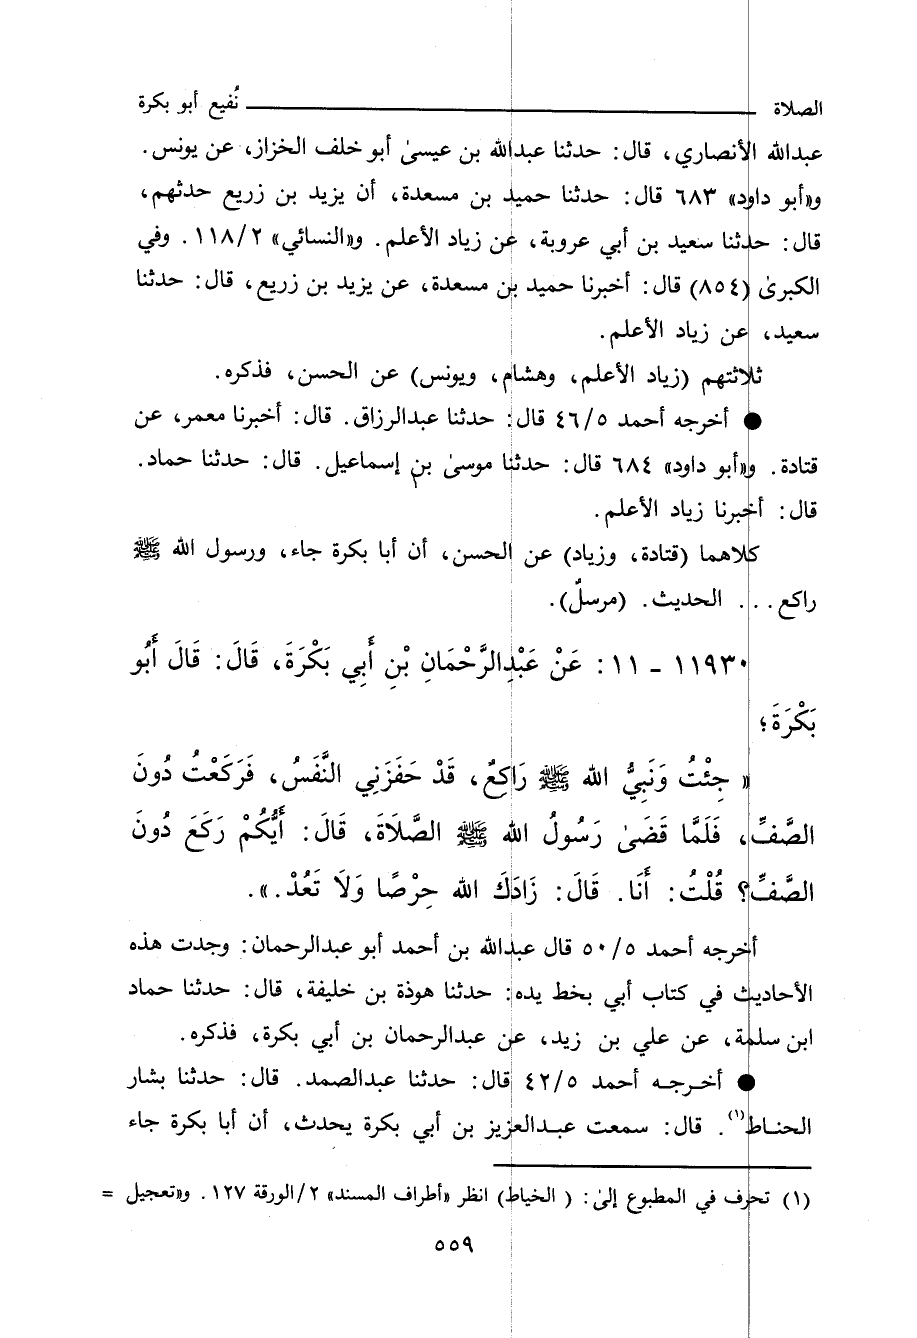 الصلاة نُفيع أبو بكرة
عبدالله الأنصاري، قال: حدثنا عبدالله بن عيسىٰ أبو خلف الخزاز، عن يونس.
و«أبو داود» ٦٨٣ قال: حدثنا حميد بن مسعدة، أن يزيد بن زريع حدثهم،
قال: حدثنا سعيد بن أبي عروبة، عن زياد الأعلم. و«النسائي» ١١٨/٢. وفي
الكبرىٰ (٨٥٤) قال: أخبرنا حميد بن مسعدة، عن يزيد بن زريع، قال: حدثنا
سعيد، عن زياد الأعلم.
ثلاثتهم (زياد الأعلم، وهشام، ويونس) عن الحسن، فذكره.
● أخرجه أحمد ٤٦/٥ قال: حدثنا عبدالرزاق. قال: أخبرنا معمر، عن
قتادة. و«أبو داود» ٦٨٤ قال: حدثنا موسىٰ بن إسماعيل. قال: حدثنا حماد.
قال: أخبرنا زياد الأعلم.
كلاهما (قتادة، وزياد) عن الحسن، أن أبا بكرة جاء، ورسول الله ﷺ
راكع... الحديث. (مرسلٌ).
١١٩٣٠ ـ ١١ : عَنْ عَبْدِالرَّحْمَانِ بْنِ أَبِي بَكْرَةَ، قَالَ: قَالَ أَبُو
بَكْرَةَ؛
« جِئْتُ وَنَبِيُّ الله ﷺ رَاكِعٌ، قَدْ حَفَزَنِي النَّفَسُ، فَرَكَعْتُ دُونَ
الصَّفِّ، فَلَمَّا قَضَىٰ رَسُولُ الله ﷺ الصَّلَاةَ، قَالَ: أَيُّكُمْ رَكَعَ دُونَ
الصَّفِّ؟ قُلْتُ: أَنَا. قَالَ: زَادَكَ الله حِرْصًا وَلَا تَعُدْ.».
أخرجه أحمد ٥٠/٥ قال عبدالله بن أحمد أبو عبدالرحمان: وجدت هذه
الأحاديث في كتاب أبي بخط يده: حدثنا هوذة بن خليفة، قال: حدثنا حماد
ابن سلمة، عن علي بن زيد، عن عبدالرحمان بن أبي بكرة، فذكره.
● أخرجه أحمد ٤٢/٥ قال: حدثنا عبدالصمد. قال: حدثنا بشار
الحناط(١). قال: سمعت عبدالعزيز بن أبي بكرة يحدث، أن أبا بكرة جاء
(١) تحرف في المطبوع إلىٰ: ( الخياط) انظر «أطراف المسند» ٢/الورقة ١٢٧. و«تعجيل =
٥٥٩